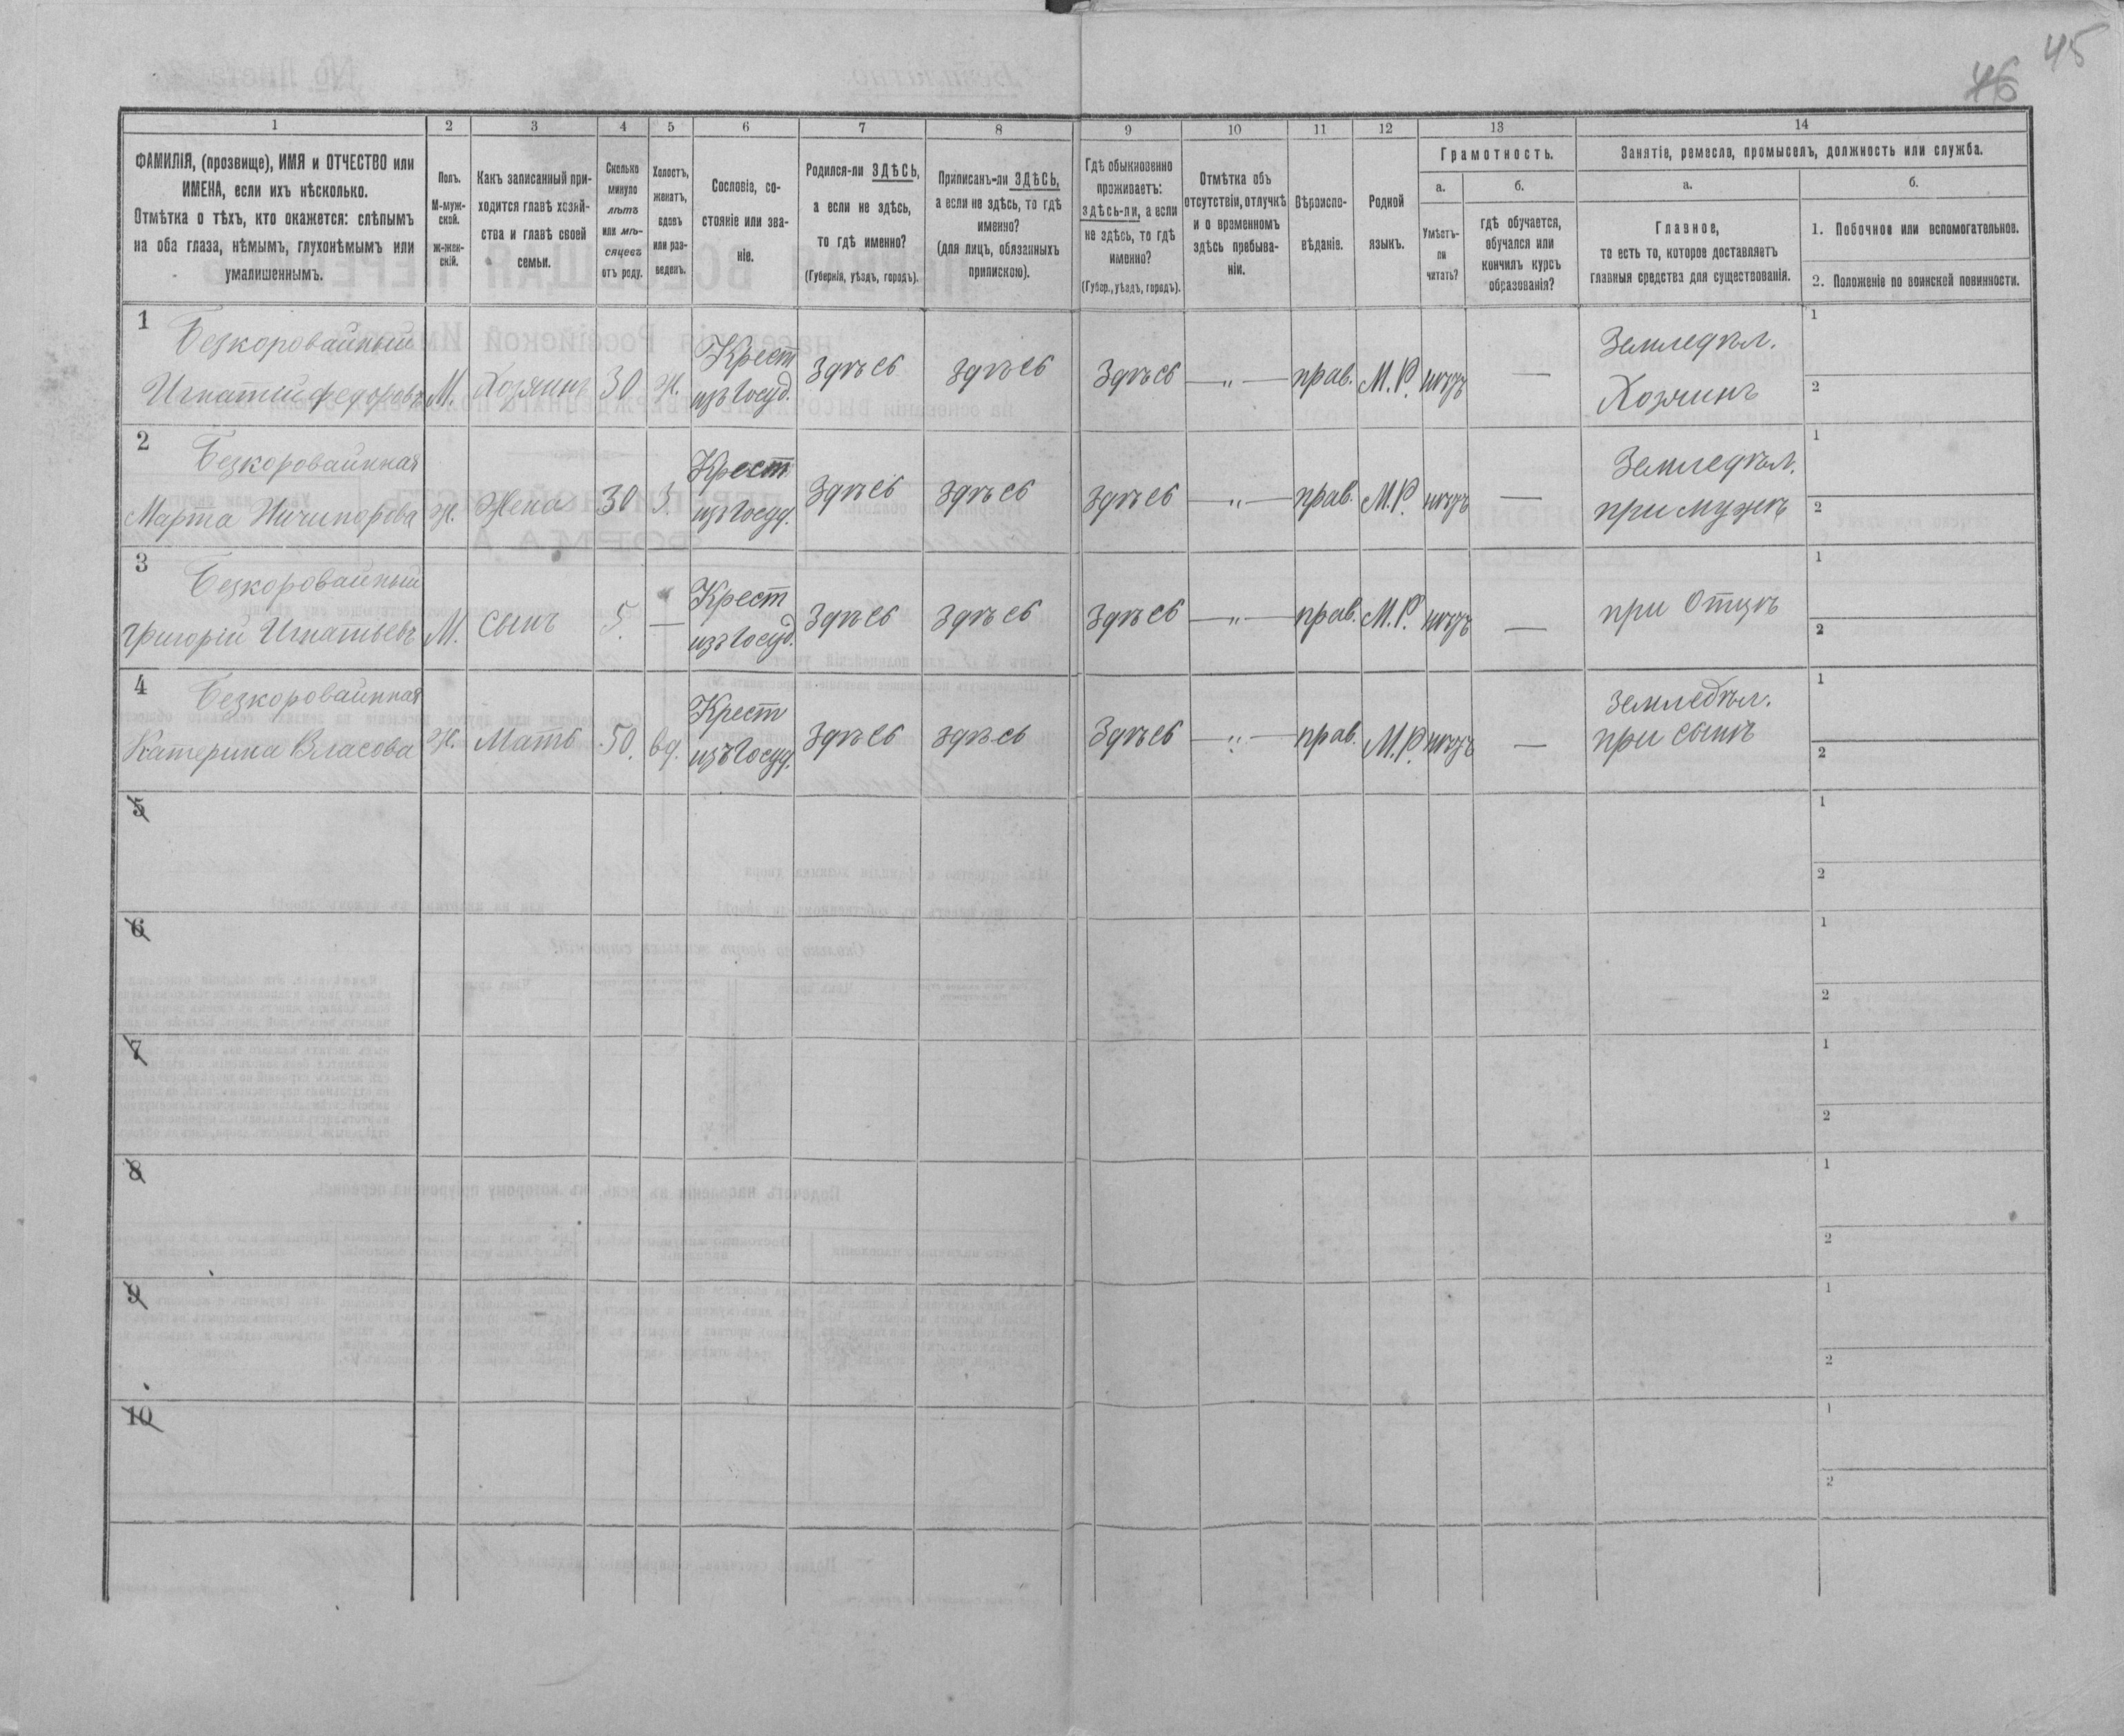 45
46
1 2 3 4 5 6 7 8 9 10 11 12 13 14
ФАМИЛІЯ, (прозвище), ИМЯ и ОТЧЕСТВО или
ИМЕНА, если ихъ нѣсколько.
Отмѣтка о тѣхъ, кто окажется: слѣпымъ
на оба глаза, нѣмымъ, глухонѣмымъ или
умалишеннымъ.
Полъ.
М-муж-
ской.
Ж-жен-
скій.
Какъ записанный при-
ходится главѣ хозяй-
ства и главѣ своей
семьи.
Сколько
минуло
лѣтъ
или мѣ-
сяцевъ
отъ роду.
Холостъ,
женатъ,
вдовъ
или раз-
веденъ.
Сословіе, со-
стояніе или зва-
ніе.
Родился-ли ЗДѢСЬ,
а если не здѣсь,
то гдѣ именно?
(Губернія, уѣздъ, городъ).
Приписанъ-ли ЗДѢСЬ,
а если не здѣсь, то гдѣ
именно?
(для лицъ, обязанныхъ
припискою).
Гдѣ обыкновенно
проживаетъ:
здѣсь-ли, а если
не здѣсь, то гдѣ
именно?
(Губер., уѣздъ, городъ).
Отмѣтка объ
отсутствіи, отлучкѣ
и о временномъ
здѣсь пребыва-
ніи.
Вѣроиспо-
вѣданіе.
Родной
языкъ.
Грамотность.
а.
Умѣетъ-
ли
читать?
б.
гдѣ обучается,
обучался или
кончилъ курсъ
образованія?
Занятіе, ремесло, промыселъ, должность или служба.
а.
Главное,
то есть то, которое доставляетъ
главныя средства для существованія.
б.
1. Побочное или вспомогательное.
2. Положеніе по воинской повинности.
1
Безкоровайный
Игнатій Федоровъ М. Хозяинъ 30 Ж. Крест изъ Госуд. Здѣсь здѣсь Здѣсь — „ — прав. М.Р. нѣтъ — Земледѣл. Хозяинъ 1 2
2
Безкоровайнная
Марта Ничипорова Ж. Жена 30 З. Крест изъ Госуд. Здѣсь здѣсь здѣсь — „ — прав. М.Р. нѣтъ — Земледѣл. при мужѣ 1 2
3
Безкоровайный
Григорій Игнатьевъ М. Сынъ 5. — Крест изъ Госуд. Здѣсь здѣсь здѣсь — „ — прав. М.Р. нѣтъ — при Отцѣ 1 2
4
Безкоровайнная
Катерина Власова Ж. Мать 50. вд. Крест изъ Госуд. здѣсь здѣсь Здѣсь — „ — прав. М.Р. нѣтъ — Земледѣл. при сынѣ 1 2
5 1 2
6 1 2
7 1 2
8 1 2
9 1 2
10 1 2